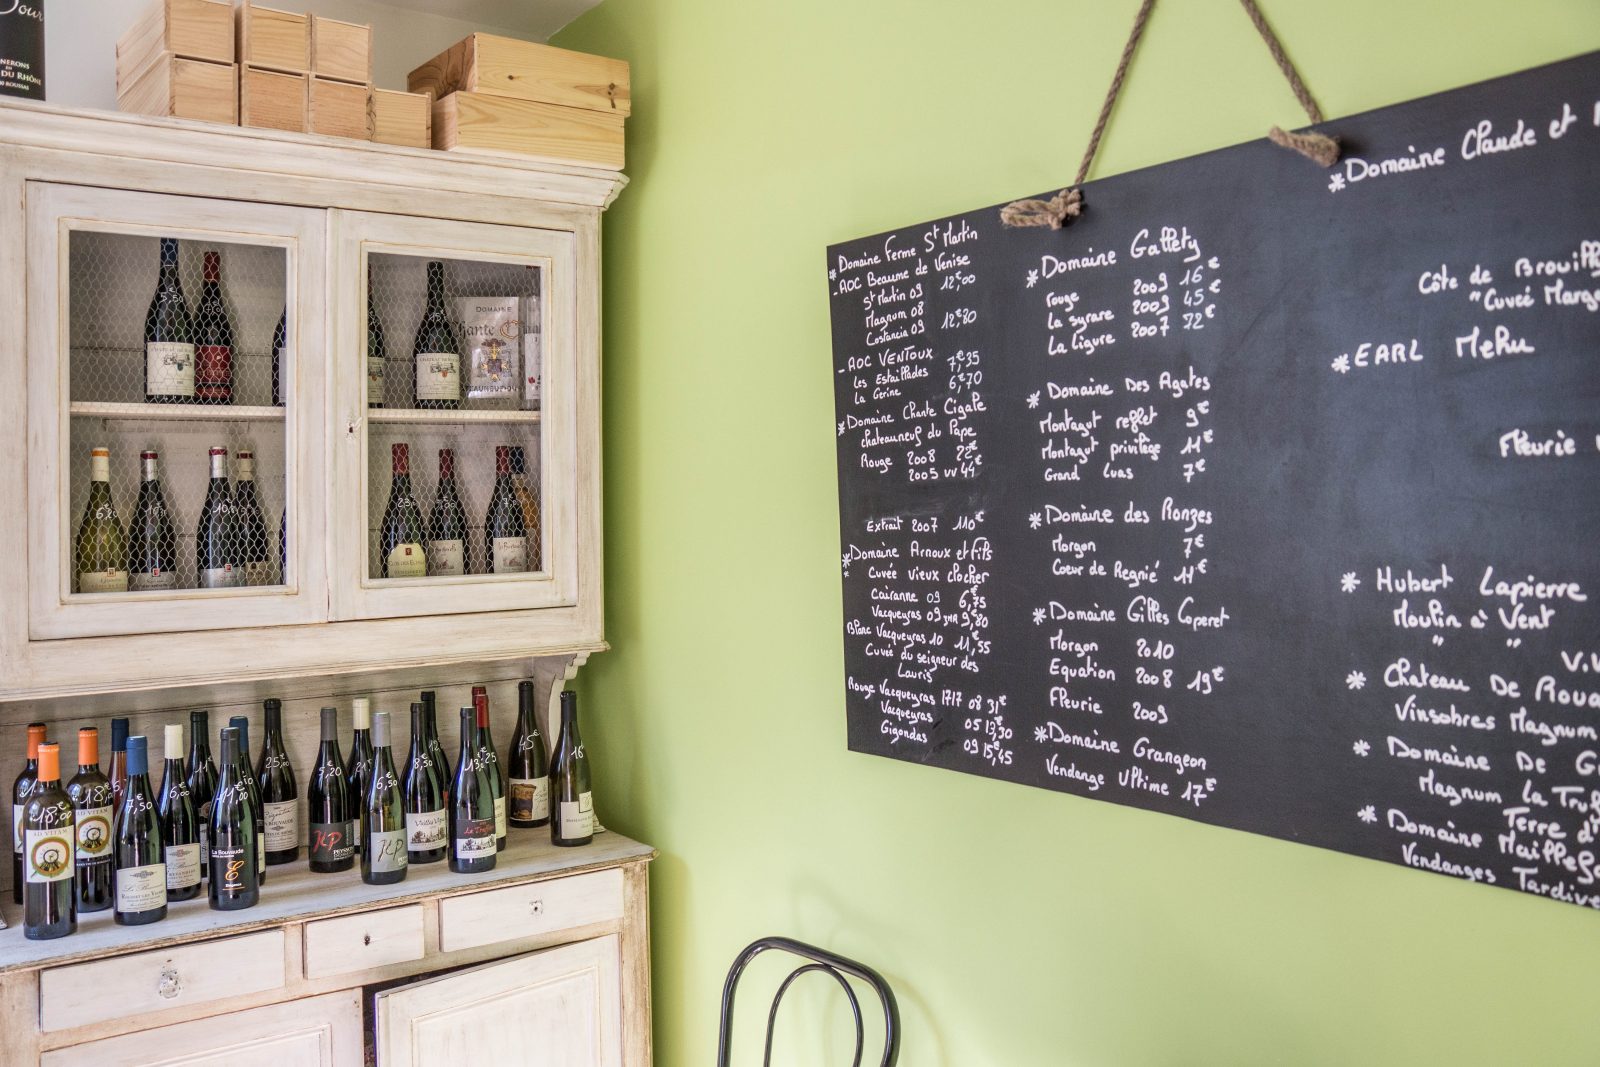 our
NERONS
EN
DU RHÔNE
5,50
DOMAINE
hante C
18,00€
AD VITAM
18,€
AD VITAM
7,50
6,00
11,00€
La Bouvaude
E
25,00
5,20
JLP
6,50
JLP
8,50
Vieilles Vignes
13,€
25
15€
16
*Domaine Ferme St Martin
-AOC Beaume de Venise
St Martin 09 12€,00
Magnum 08
Costancia 09 12€,80
-AOC VENTOUX
Les Estaillades 7€,35
La Gerine 6€,70
*Domaine Chante Cigale
chateauneuf du Pape
Rouge 2008 22€
2005 vv 44€
Extrait 2007 110€
*Domaine Arnoux et Fils
Cuvée vieux clocher
Cairanne 09 6,75
Vacqueyras 09 9,80
Blanc Vacqueyras 10 11€,55
Cuvée du seigneur des
Lauris
Rouge Vacqueyras 1717 08 31€
Vacqueyras 05 13,30
Gigondas 09 15€,45
*Domaine Gallety
rouge 2009 16€
La syrare 2009 45€
La Ligure 2007 72€
*Domaine Des Agates
Montagut reflet 9€
Montagut privilège 11€
Grand Luas 7€
*Domaine des Ronzes
Morgon 7€
Coeur de Regnié 11€
*Domaine Gilles Coperet
Morgon 2010
Equation 2008 19€
Fleurie 2009
*Domaine Grangeon
Vendange Ultime 17€
*Domaine Claude et
Côte de Brouilly
"Cuveé Marg
*EARL Mehu
Fleurie
* Hubert Lapierre
Moulin à Vent
" "
V.V
* Chateau De Roua
Vinsobres Magnum
* Domaine De G
Magnum La Truf
Terre d'
* Domaine Maillefa
Vendanges Tardive